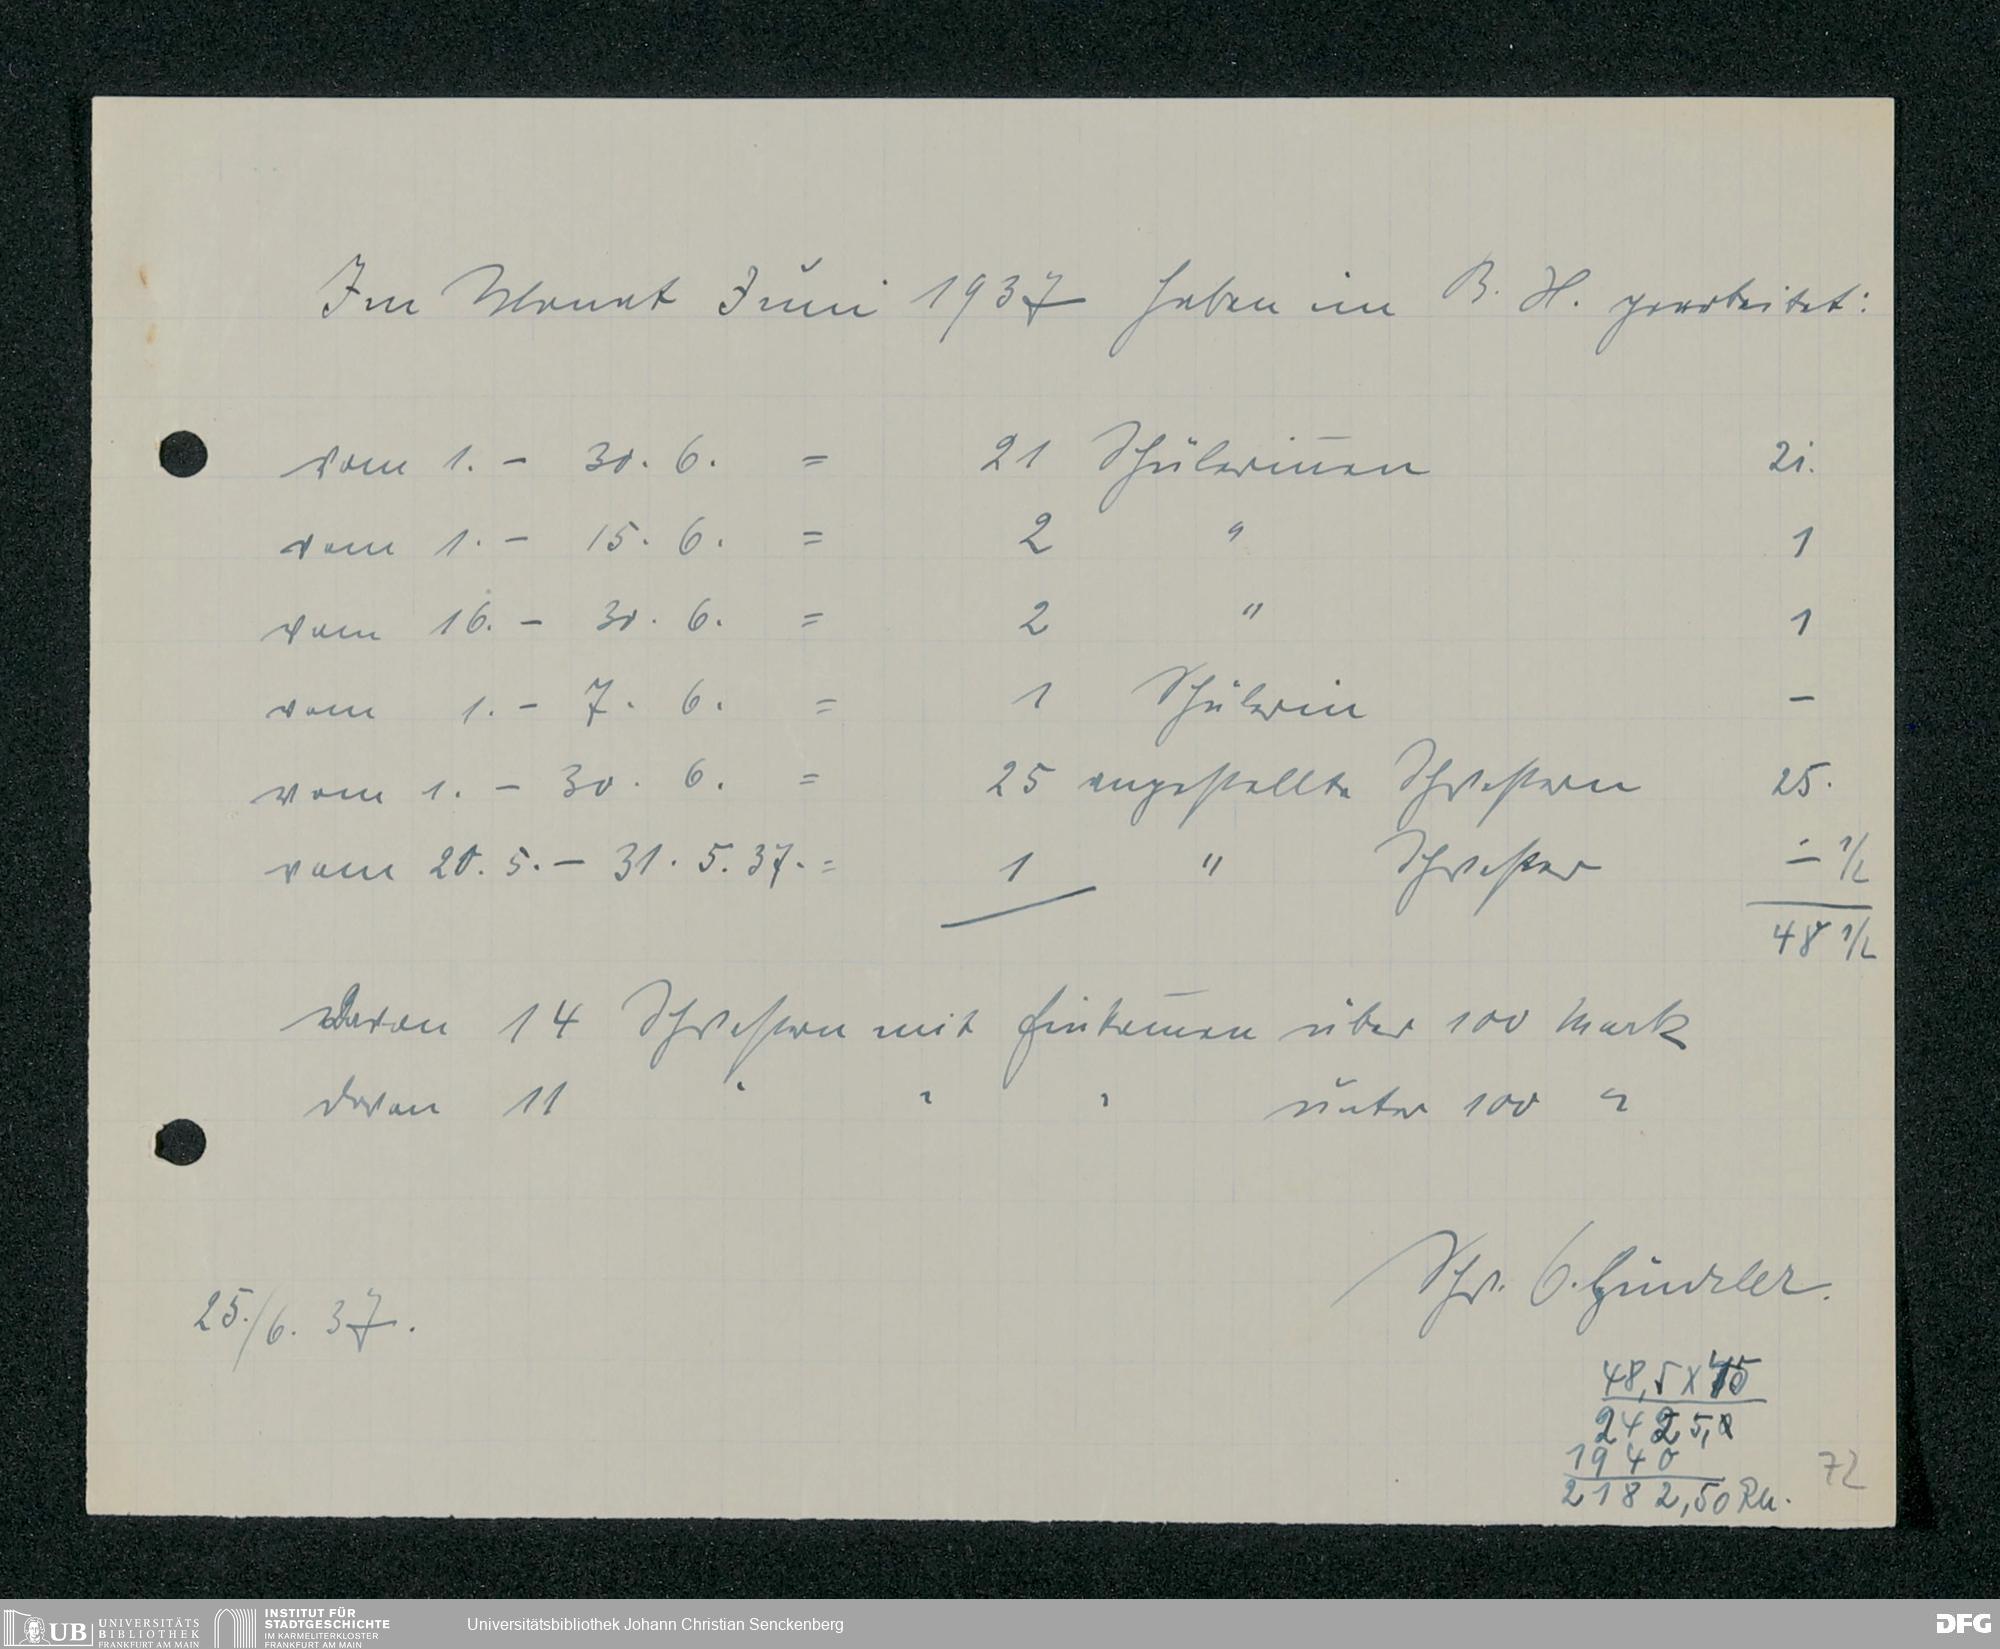 Im Monat Juni 1937 haben im B. H. gearbeitet:
vom 1. - 30. 6. = 21 Schülerinnen 21.
vom 1. - 15. 6. = 2 " 1
vom 16. - 30. 6. = 2 " 1
vom 1. - 7. 6. = 1 Schülerin –
vom 1. - 30. 6. = 25 angestellte Schwestern 25.
vom 20. 5. - 31. 5. 37. = 1 " Schwester – 1/2
48 1/2
Davon 14 Schwestern mit Einkommen über 100 Mark
davon 11 " " " unter 100 "
Schw.
25./6. 37.
48,5 x 45
242 5,0
1940
2182,50 RM.
72
UB UNIVERSITÄTS BIBLIOTHEK FRANKFURT AM MAIN
INSTITUT FÜR STADTGESCHICHTE IM KARMELITERKLOSTER FRANKFURT AM MAIN
Universitätsbibliothek Johann Christian Senckenberg
DFG